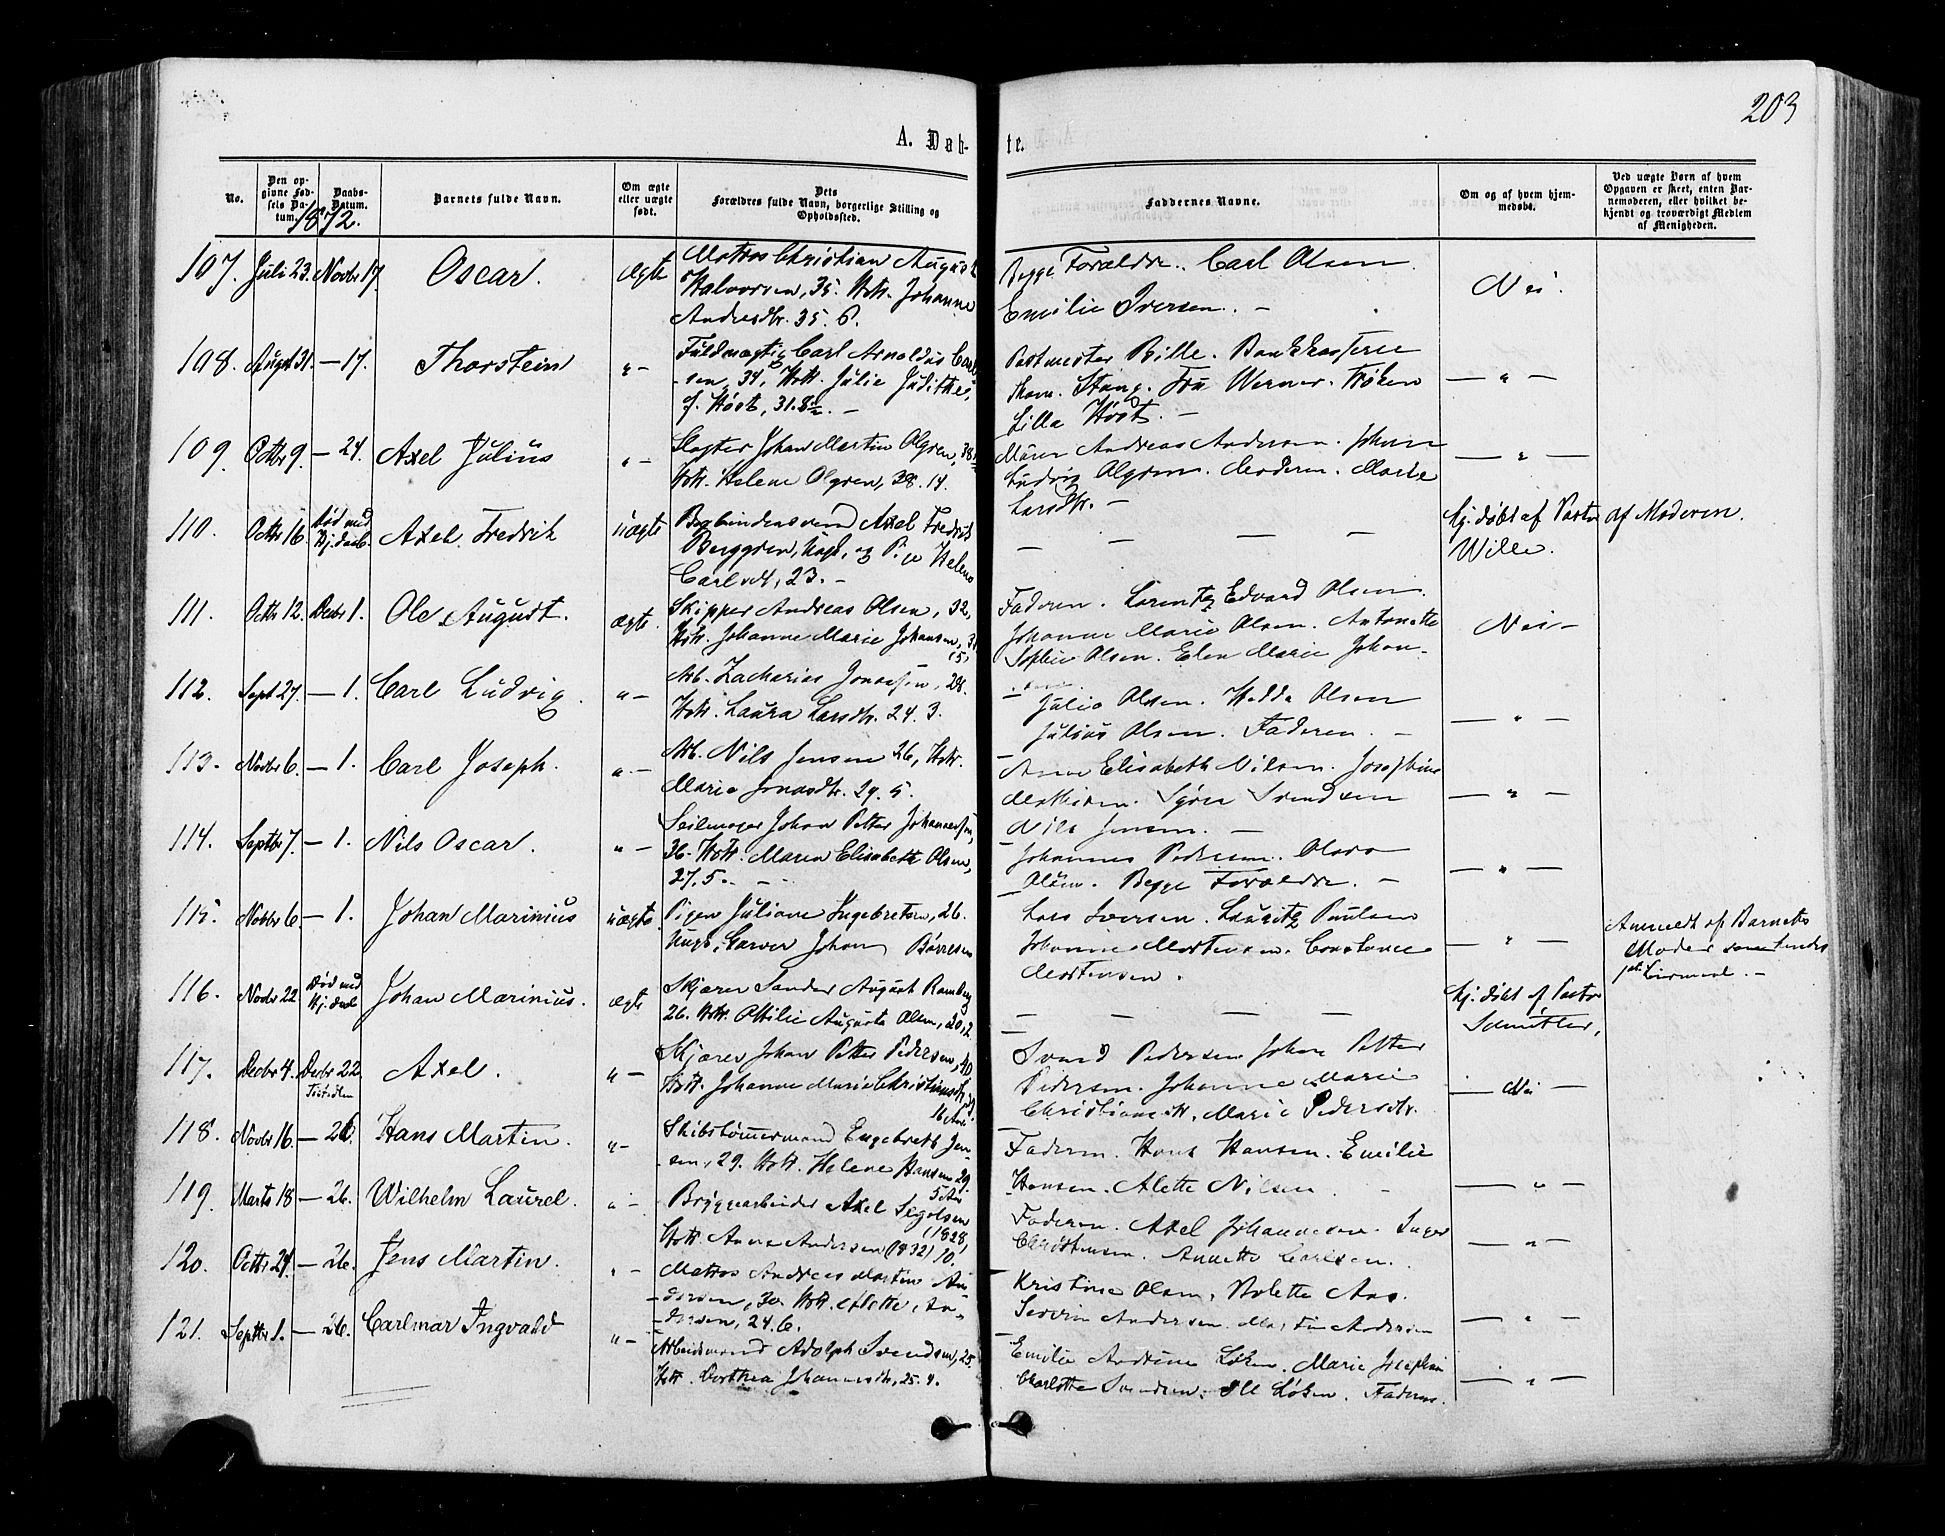 203
A. Døb-
te.
No.
Den op-
givne Fød-
sels Da-
tum.
Daabs-
Datum.
1872.
Barnets fulde Navn.
Om ægte
eller uægte
født.
Dets
Forældres fulde Navn, borgerlige Stilling og
Opholdssted.
Faddernes Navne.
Om og af hvem hjem-
medøbt.
Ved uægte Børn af hvem
Opgaven er skeet, enten Bar-
nemoderen, eller hvilket be-
kjendt og troværdigt Medlem
af Menigheden.
107. Juli 23. Novbr 17. Oscar. Ægte
Matros Christian August
Halvorsen, 35. Hstr. Johanne
Andersdtr. 35. 6.
Begge Forældre. Carl Olsen.
Emilie Iversen. —
Nei.
108. Augst 31. — 17. Thorstein " —
Fuldmægtig Carl Arnoldus Carl
sen, 34, Hstr. Julie Judithe,
f. Høst, 31. 8
Postmester Bille. Bankkasserer
Thom. Stang. Fru Werner. Frøken
Lilla Høst. —
— " —
109. Octbr 9. — 24. Axel Julius " —
Slagter Johan Martin Olgren, 38
Hstr. Helene Olgren, 38. 14.
Murer Andreas Andersen. Johan
Ludvig Olgren. Moderen. Marthe
Larsdtr. —
— " —
110. Octbr 16. Død med Hj. daab. Axel Fredrik uægte
Bogbindersvend Axel Fredrik
Berggren, Ungk, og Pige Helene
Carlsdt, 23. —
— — — —
Hj. døbt af Pastor
Wille.
af Moderen.
111. Octbr 12. Decbr 1. Ole August. ægte.
Skipper Andreas Olsen, 32,
Hstr. Johanne Marie Johansen, 31
(5)
Faderen. Lorentz Edvard Olsen.
Johanne Marie Olsen. Antonette
Sophie Olsen. Elen Marie Johan-
Nei —
112. Sept 27. — 1. Carl Ludvig. " —
Arb. Zacharias Jonassen, 28.
Hstr. Laura Larsdtr. 24. 3.
Julie Olsen. Hedda Olsen
Julius Olsen. Faderen. —
— " —
113. Novbr 6. — 1. Carl Joseph. " —
Arb. Nils Jensen 26, Hstr.
Marie Jonasdtr. 29. 5.
Anne Elisabeth Nilsen. Josephine
Mathisen. Søren Svendsen
Nils Jensen. —
— " —
114. Septbr 7. — 1. Nils Oscar. " —
Seilmager Johan Petter Johannessen,
36. Hstr. Maren Elisabeth Olsen,
27. 5. —
Johannes Pedersen. Olava
Olsen. Begge Forældre. —
— " —
115. Novbr 6. — 1. Johan Marinius uægte
Pigen Juliane Ingebretsen, 26.
Ungk. Garver Johan Børresen
Lars Iversen. Lauritz Paulsen
Johanne Mortensen. Constance
Mortensen.
— " —
Anmeldt af Barnets
Moder
116. Novbr 22 Død med Hj. daab Johan Marinius. ægte
Skjærer Sander August Ramberg
26. Hstr. Ottilie Augusta Olsen, 20, 2
— — — —
Hj. døbt af Pastor
117. Decbr 4. Decbr 22 Axel. " —
Skjærer Johan Petter Pedersen, 40
Hstr. Johanne Marie Christiansdtr,
Svend Pedersen Johan Petter
Pedersen. Johanne Marie
Christiansdtr. Marie Pedersdtr.
— Nei —
118. Novbr 16. — 26. Hans Martin. " —
Skibstømmermand Engebreth Jen-
sen, 29. Hstr. Helene Hansen 29
Faderen. Hans Hansen. Emilie
Hansen. Alette Nilsen.
— " —
119. Marts 18 — 26. Wilhelm Laurel. " —
Bryggearbeider Axel
(1828)
Hstr. Anne Andersen (1832) 10.
Faderen. Axel Johannesen. Inger
Christensen. Annette Carlsen.
— " —
120. Octbr 24. — 26. Jens Martin. " —
Matros Andreas Martin An-
dersen, 30. Hstr. Alette An-
dersen, 24. 6.
Kristine Olsen, Nolette Aas.
Severin Andersen. Martin Andersen
— " —
121. Septbr 1. — 26. Carlmar Ingvald " —
Arbeidsmand Adolph Svendsen, 25.
Hstr. Dorthea Johannesdtr, 25. 4.
Emilie Andrine Løken. Marie Josephine
Charlotte Svendsen. Ole Løken. Faderen.
— " —